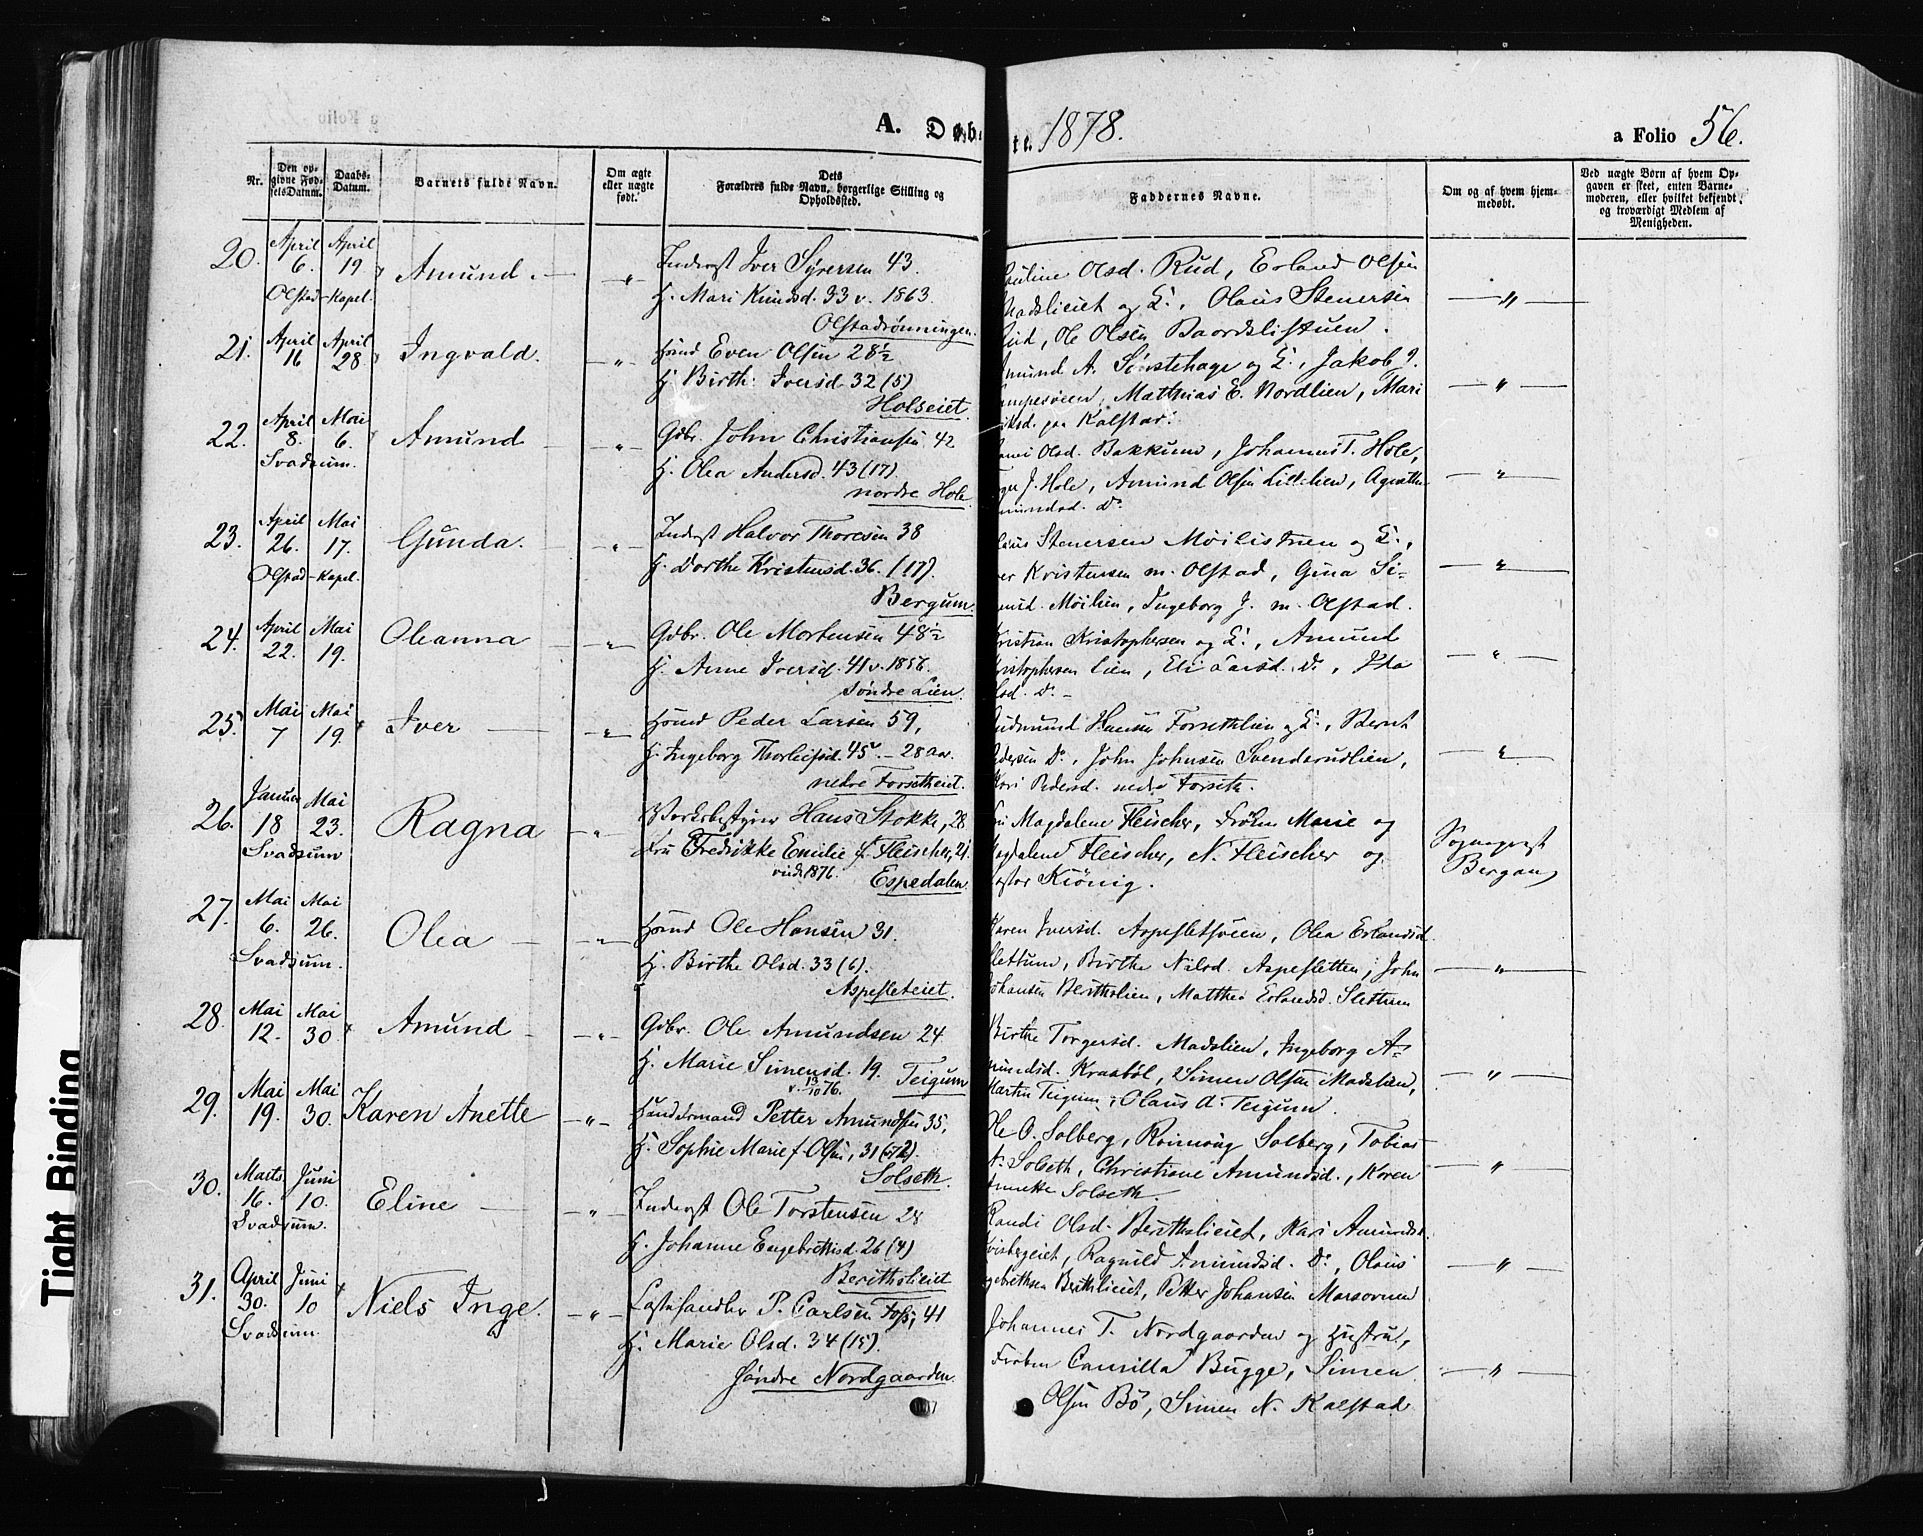 A. Døb-
te. 1878.
a Folio 56.
Nr.
Den op-
givne Fød-
selsDatum.
Daabs-
Datum.
Barnets fulde Navn.
Om ægte
eller uægte
født.
Dets
Forældres fulde Navn, borgerlige Stilling og
Opholdssted.
Faddernes Navne.
Om og af hvem hjem-
medøbt.
Ved uægte Børn af hvem Op-
gaven er skeet, enten Barne-
moderen, eller hvilket bekjendt
og troværdigt Medlem af
Menigheden.
20. April 6. April 19 Amund
Olstad-Kapel
Inderst Iver Syversen 43.
H. Mari Knudsd. 33 v. 1863.
Olstadrønningen.
Olsd. Rud, Erland Olsen
og H., Olaus Stenersen
Ole Olsen Baardslistuen.
21. April 16 April 28 Ingvald.
Huusmd Even Olsen 28½
H. Birth. Iversd. 32 (5)
Holseiet.
A. Sørstehage og H., Jakob J.
Matthias E. Nordlien, Mari
paa Kalstad.
22. April 8. Mai 6. Amund
Svadsum.
Gdbr. John Christiansen 42
H. Olea Andersd. 43 (17)
nordre Hole
Olsd. Bakkum, Johannes T. Hole,
J. Hole, Amund Olsen Lillelien,
Do
23. April 26. Mai 17. Gunda.
Olstad-Kapel.
Inderst Halvor Thoresen 38
H. Dorthe Kristensd. 36. (17).
Bergum.
Stenersen Møilistuen og H.,
Kristensen m. Olstad, Gina Si-
Møilien, Ingeborg J. m. Olstad.
24. April 22. Mai 19. Oleanna
Gdbr. Ole Mortensen 48½
H. Anne Iversd. 41 v. 1856.
søndre Lien.
Kristian Kristophersen og H., Amund
Lien, Eli Larsd. Do,
Do
25. Mai 7 Mai 19. Iver
Huusmd Peder Larsen 59,
H. Ingeborg Thorleifsd. 45. - 28 Aar.
nedre Forsetheiet.
Gudmund Hansen Forsethlien og H., Bernt
Pedersen Do, John Johnsen Svenderudlien,
Pedersd. nedre Forseth.
26. Januar 18 Mai 23. Ragna
Svadsum
Værksbestyrer Hans Stokke, 28
Fru Fredrikke Emilie f. Fleischer, 21.
viede 1876. Espedalen
Fru Magdalene Fleischer, Frøken Marie og
Magdalene Fleischer, N. Fleischer og
Pastor Krönig.
Sogneprest
Bergan
27. Mai 6. Mai 26. Olea
Svadsum.
Huusmd Ole Hansen 31.
H. Birthe Olsd. 33 (6).
Aspesleteiet.
Karen Iversd. Aspesletsveen, Olea Erlandsd.
Slettum, Birthe Nilsd. Aspesletten, John
Johansen Beritholien, Mathea Erlandsd. Slettum
28. Mai 12. Mai 30. Amund
Gdbr. Ole Amundsen 24
H. Marie Simensd. 19. Teigum
v. 13/10 76.
Birthe Torgersd. Madslien, Ingeborg A-
mundsd. Kraabøl, Simen Olsen Madslien,
Martin Teigum, Olaus A. Teigum.
29. Mai 19. Mai 30. Karen Anette
Handelsmand Petter Amundsen 35,
H. Sophie Marie f. Olsen, 31
Solseth.
Ole O. Solberg, Solberg, Tobias
A. Solseth, Christiane Amundsd., Karen
Annette Solseth.
30. Marts 16. Juni 10. Eline
Svadsum.
Inderst Ole Torstensen 28
H. Johanne Engebretsd. 26 (4)
Beritholieiet
Randi Olsd. Beritholieiet, Kari Amundsd.
Ragnild Amundsd. Do, Olaus
Engebrethsen Beritholieiet, Petter Johansen
31. April 30. Juni 10 Niels Inge.
Svadsum.
Lastehandler P. Carlsen Foss, 41
H. Marie Olsd. 34 (15).
søndre Nordgaarden.
Johannes T. Nordgaarden og Hustru,
Frøken Camilla Bugge, Simen
Olsen Bø, Simen N. Kalstad
Tight Binding